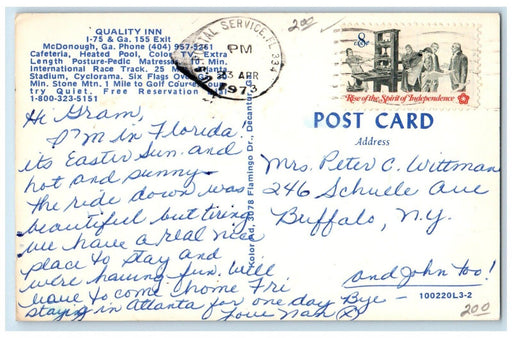 QUALITY INN
I-75 & Ga. 155 Exit
McDonough, Ga. Phone (404) 957-5261
Cafeteria, Heated Pool, Color TV, Extra
Length Posture-Pedic Mattresses. 10. Min.
International Race Track, 25 Atlanta
Stadium, Cyclorama. Six Flags Over
Min. Stone Mtn. 1 Mile to Golf Course
try Quiet. Free Reservation
1-800-323-5151
Hi Gram,
I'm in Florida
its Easter Sun. and
hot and sunny.
The ride down was
beautiful but tiring
we have a real nice
place to stay and
were having fun. Will
have to come home Fri
staying in Atlanta for one day Bye -
Love Nan (X)
Kolor Ad, 3078 Flamingo Dr., Decatur, G
AL SERVICE, FL 334
PM
APR
1973
200
8c
Rise of the Spirit of Independence
POST CARD
Address
Mrs. Peter C. Wittman
246 Schuele Ave
Buffalo, N.Y.
and John too!
100220L3-2
200